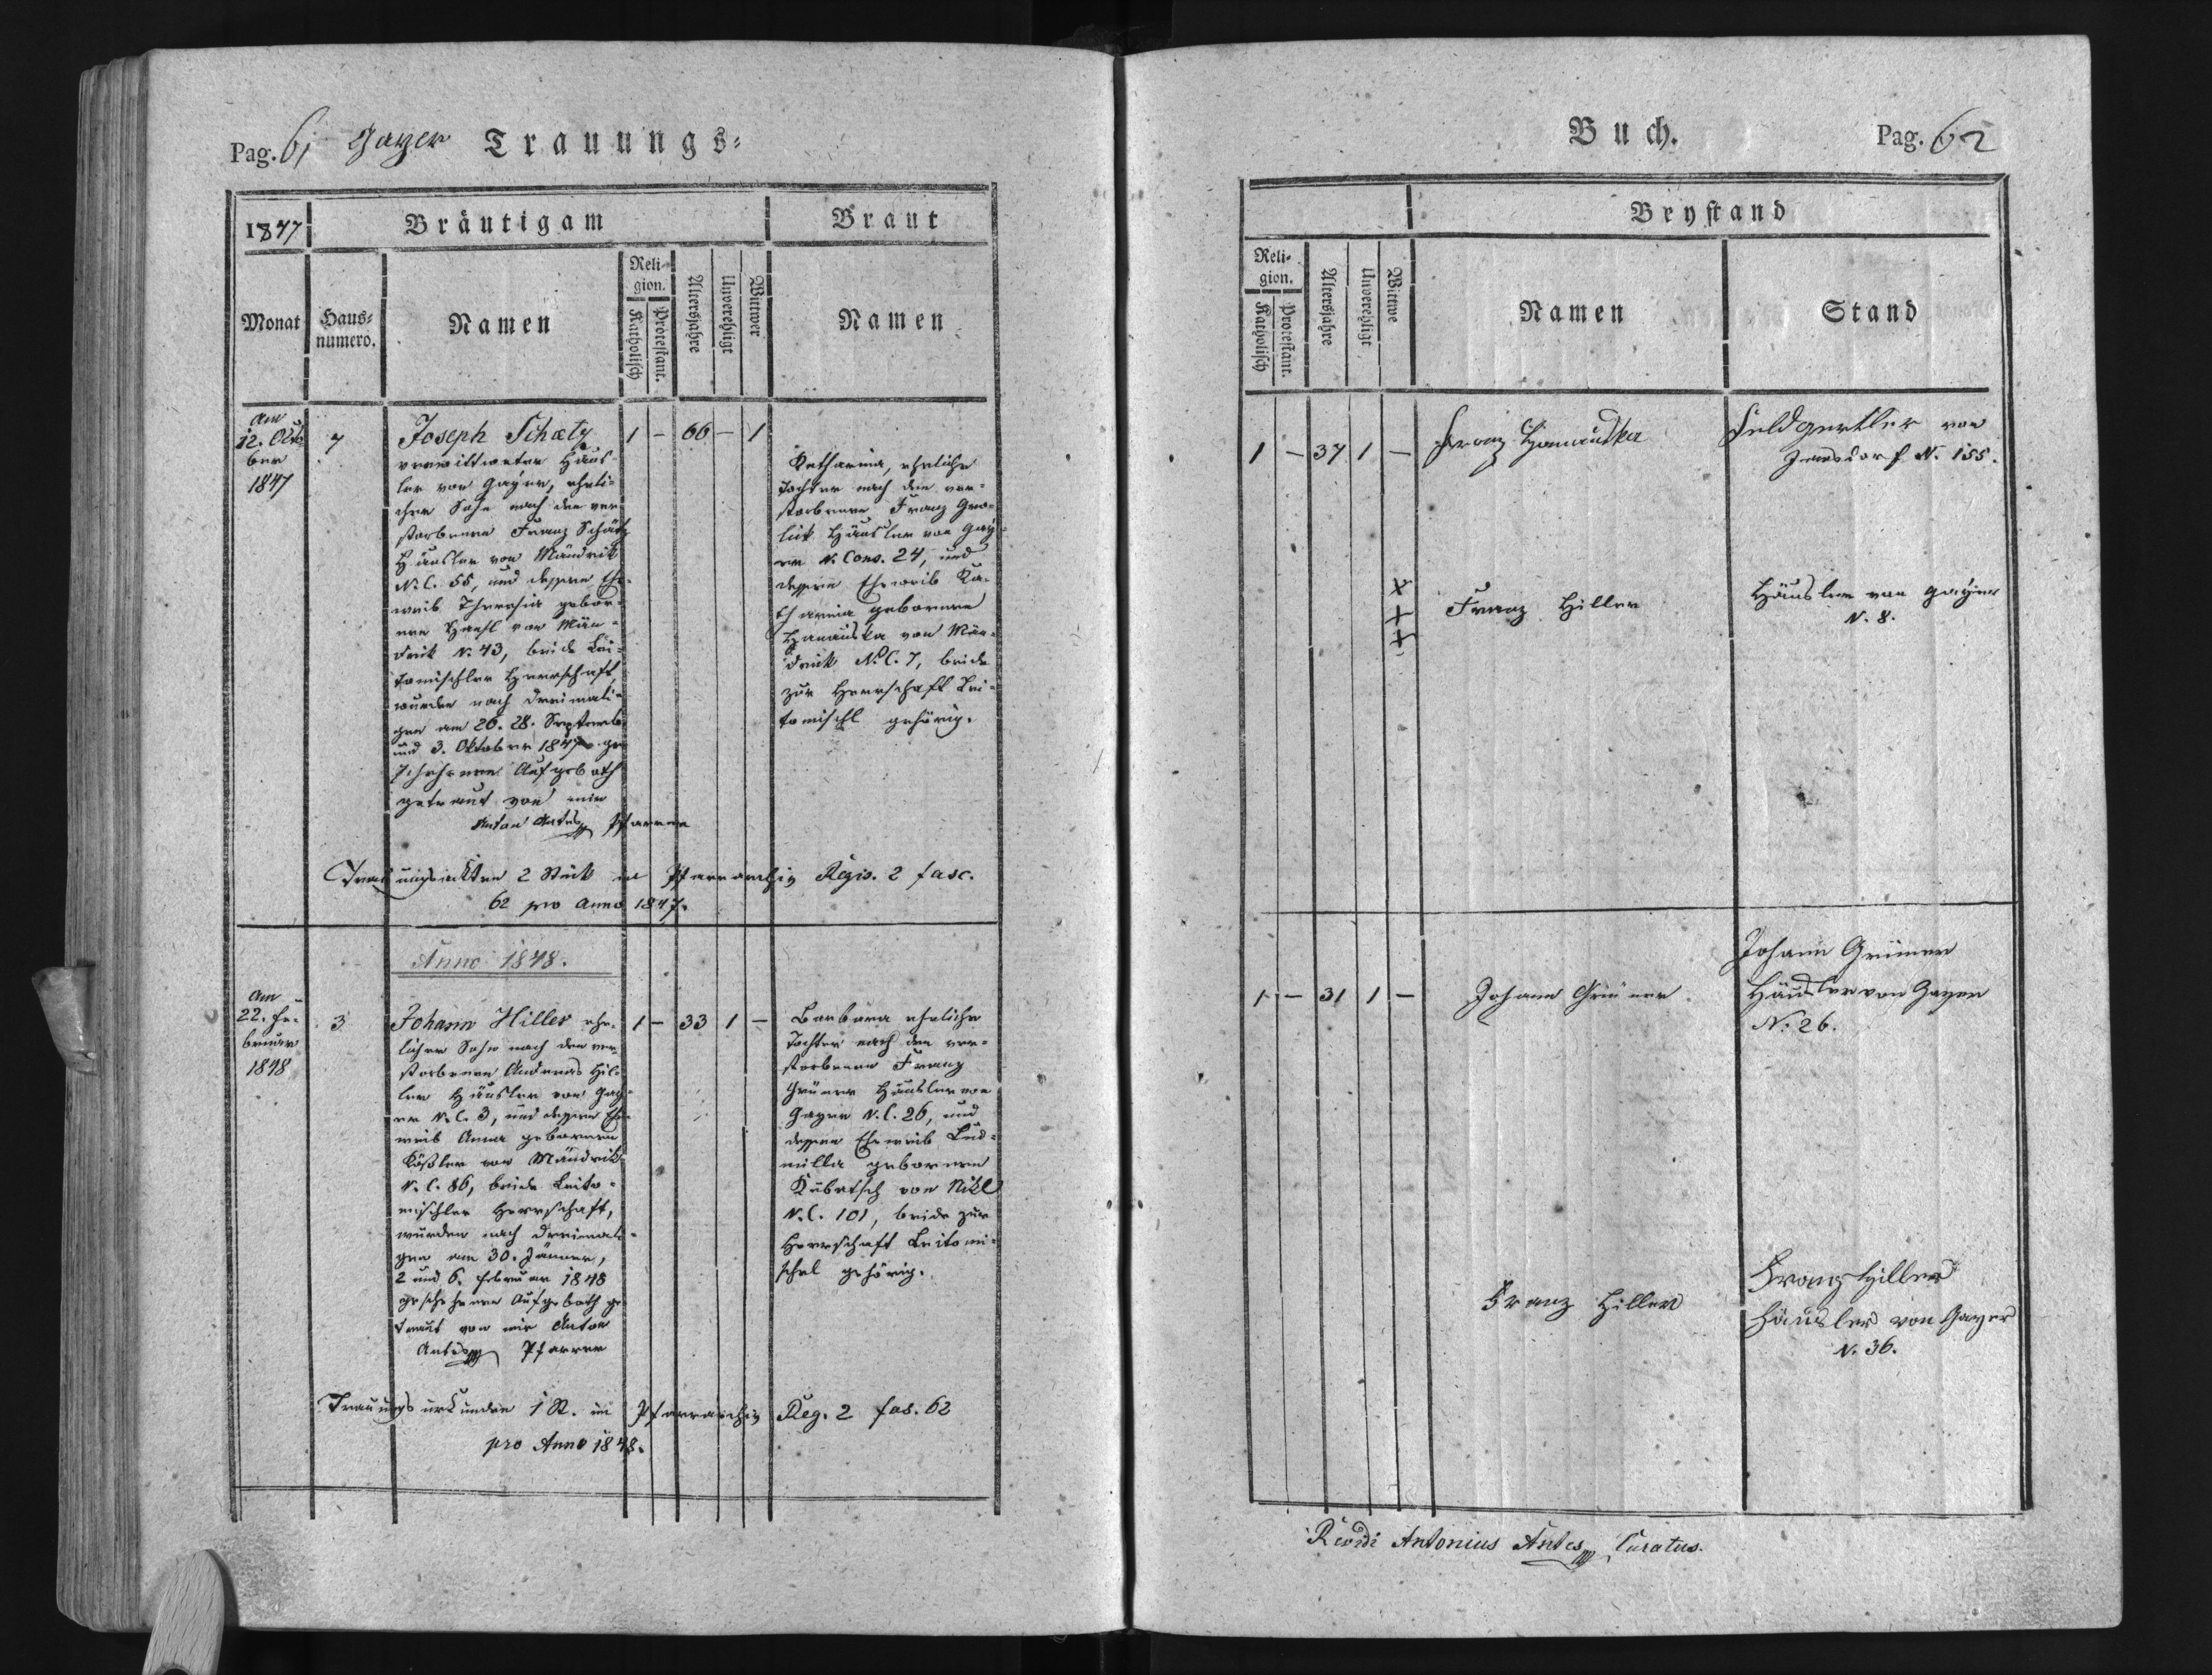 Pag. 61 Gayer Trauungs=
1847
Bräutigam
Braut
Monat
Haus=
numero.
Namen
Reli=
gion.
Katholisch
Protestant.
Altersjahre
Unverehligt
Wittwer
Namen
Am
12. Okto
ber
1847
7
Joseph Schätz
verwittweter Häus-
ler von Gayer, eheli-
cher Sohn nach den ver-
storbenen Franz Schätz
Häusler von Mändrik
N. C. 55, und dessen Ehe-
weib Theresia gebor-
nen von Män-
drik N. 43, beide Lei-
tomischler Herrschaft,
wurden nach dreimali-
gen am 26. 28. Septemb.
und 3. Oktober 1847 ge-
schehenen Aufgeboth
getraut von mir
Anton Antes Pfarrer
1 — 66 — 1
Katharina, eheliche
Tochter nach den ver-
storbenen Franz Gro-
lik Häusler von Gay-
er N. Cons. 24, und
dessen Eheweib Ka-
tharina geborenen
Hanauska von Män-
drik N. C. 7, beide
zur Herrschaft Lei-
tomischl gehörig.
Trauungsakten 2 Stück im Pfarrarchiv Regis. 2 fasc.
62 pro Anno 1847.
Anno 1848.
Am
22. Fe-
bruar
1848
3
Johann Hiller ehe-
licher Sohn nach den ver-
storbenen Andreas Hil-
ler Häusler von Gay-
er N. C. 3, und dessen Ehe-
weib Anna geborenen
Kößler von Mändrik
N. C. 86, beide Leito-
mischler Herrschaft,
wurden nach dreimali-
gen am 30. Jänner,
2 und 6. Februar 1848
geschehenen Aufgeboth ge-
traut von mir Anton
Antes Pfarrer
1 — 33 1 —
Barbara eheliche
Tochter nach den ver-
storbenen Franz
Grüner Häusler von
Gayer N. C. 26, und
dessen Eheweib Lud-
milla geborenen
Kubetsch von Nikl
N. C. 101, beide zur
Herrschaft Leitomi-
schel gehörig.
Trauungsurkunden 1 St. im Pfarrarchiv Reg. 2 fas. 62
pro Anno 1848.
Buch. Pag. 62
Beystand
Reli=
gion.
Katholisch
Protestant.
Altersjahre
Unverehligt
Wittwe
Namen
Stand
1 — 37 1 —
Franz Hanauska
Feldgärtler von
Jansdorf N. 155.
+++
Franz Hiller
Häusler von Gayer
N. 8.
1 — 31 1 —
Johann Grüner
Johann Grüner
Häusler von Gayer
N. 26.
Franz Hiller
Franz Hiller
Häusler von Gayer
N. 36.
Antonius Antes Curatus.